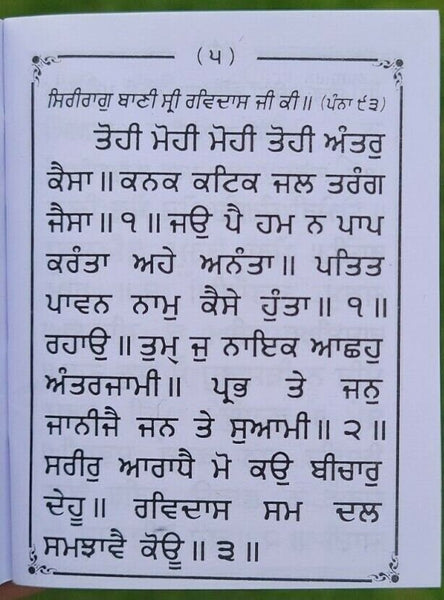 (੫)
ਸਿਰੀਰਾਗੁ ਬਾਣੀ ਸ੍ਰੀ ਰਵਿਦਾਸ ਜੀ ਕੀ॥ (ਪੰਨਾ ੯੩)
ਤੋਹੀ ਮੋਹੀ ਮੋਹੀ ਤੋਹੀ ਅੰਤਰੁ
ਕੈਸਾ॥ ਕਨਕ ਕਟਿਕ ਜਲ ਤਰੰਗ
ਜੈਸਾ॥੧॥ ਜਉ ਪੈ ਹਮ ਨ ਪਾਪ
ਕਰੰਤਾ ਅਹੇ ਅਨੰਤਾ॥ ਪਤਿਤ
ਪਾਵਨ ਨਾਮੁ ਕੈਸੇ ਹੁੰਤਾ॥੧॥
ਰਹਾਉ॥ ਤੁਮ੍ ਜੁ ਨਾਇਕ ਆਛਹੁ
ਅੰਤਰਜਾਮੀ॥ ਪ੍ਰਭ ਤੇ ਜਨੁ
ਜਾਨੀਜੈ ਜਨ ਤੇ ਸੁਆਮੀ॥੨॥
ਸਰੀਰੁ ਆਰਾਧੈ ਮੋ ਕਉ ਬੀਚਾਰੁ
ਦੇਹੂ॥ ਰਵਿਦਾਸ ਸਮ ਦਲ
ਸਮਝਾਵੈ ਕੋਊ॥੩॥